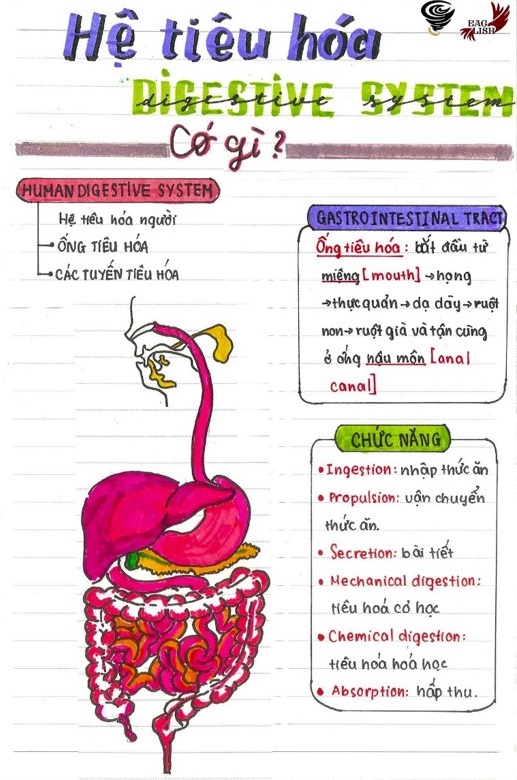 Hệ tiêu hóa
EAG
LISH
DIGESTIVE SYSTEM
digestive system
Có gì?
HUMAN DIGESTIVE SYSTEM
Hệ tiêu hóa người
• ỐNG TIÊU HÓA
• CÁC TUYẾN TIÊU HÓA
GASTROINTESTINAL TRACT
Ống tiêu hóa: bắt đầu từ
miệng [mouth] → họng
→ thực quản → dạ dày → ruột
non → ruột già và tận cùng
ở ống hậu môn [anal
canal]
CHỨC NĂNG
• Ingestion: nhập thức ăn
• Propulsion: vận chuyển
thức ăn.
• Secretion: bài tiết
• Mechanical digestion:
tiêu hoá cơ học
• Chemical digestion:
tiêu hoá hoá học
• Absorption: hấp thu.